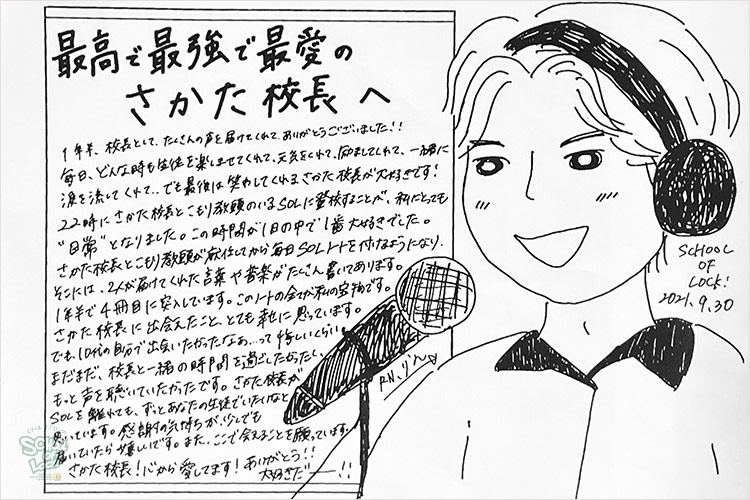 最高で最強で最愛の
さかた校長へ
1年半、校長として、たくさんの声を届けてくれて、ありがとうございました!!
毎日、どんな時も生徒を楽しませてくれて、元気をくれて、励ましてくれて、一緒に
涙を流してくれて、でも最後は笑わしてくれるさかた校長が大好きです!
22時にさかた校長とこもり教頭のいるSOLに登校することが、私にとっても
"日常"となりました。この時間が1日の中で1番大好きでした。
さかた校長とこもり教頭が就任してから毎日SOLノートを付けるようになり、
そこには、2人が届けてくれた言葉や音楽がたくさん書いてあります。
1年半で4冊目に突入しています。このノートの全てが私の宝物です。
さかた校長に出会えたこと、とても幸せに思っています。
でも、10代の自分で出会いたかったなぁ…って悔しいくらい。
まだまだ、校長と一緒の時間を過ごしたかったし、
もっと声を聴いていたかったです。さかた校長が
SOLを離れても、ずっとあなたの生徒でいたいなと
思っています。感謝の気持ちが、少しでも
届いていたら嬉しいです。また、ここで会えることを願っています
さかた校長!心から愛してます!ありがとう!!
大好きだーー!!
RN.りん
SCHOOL
OF
LOCK!
2021.9.30